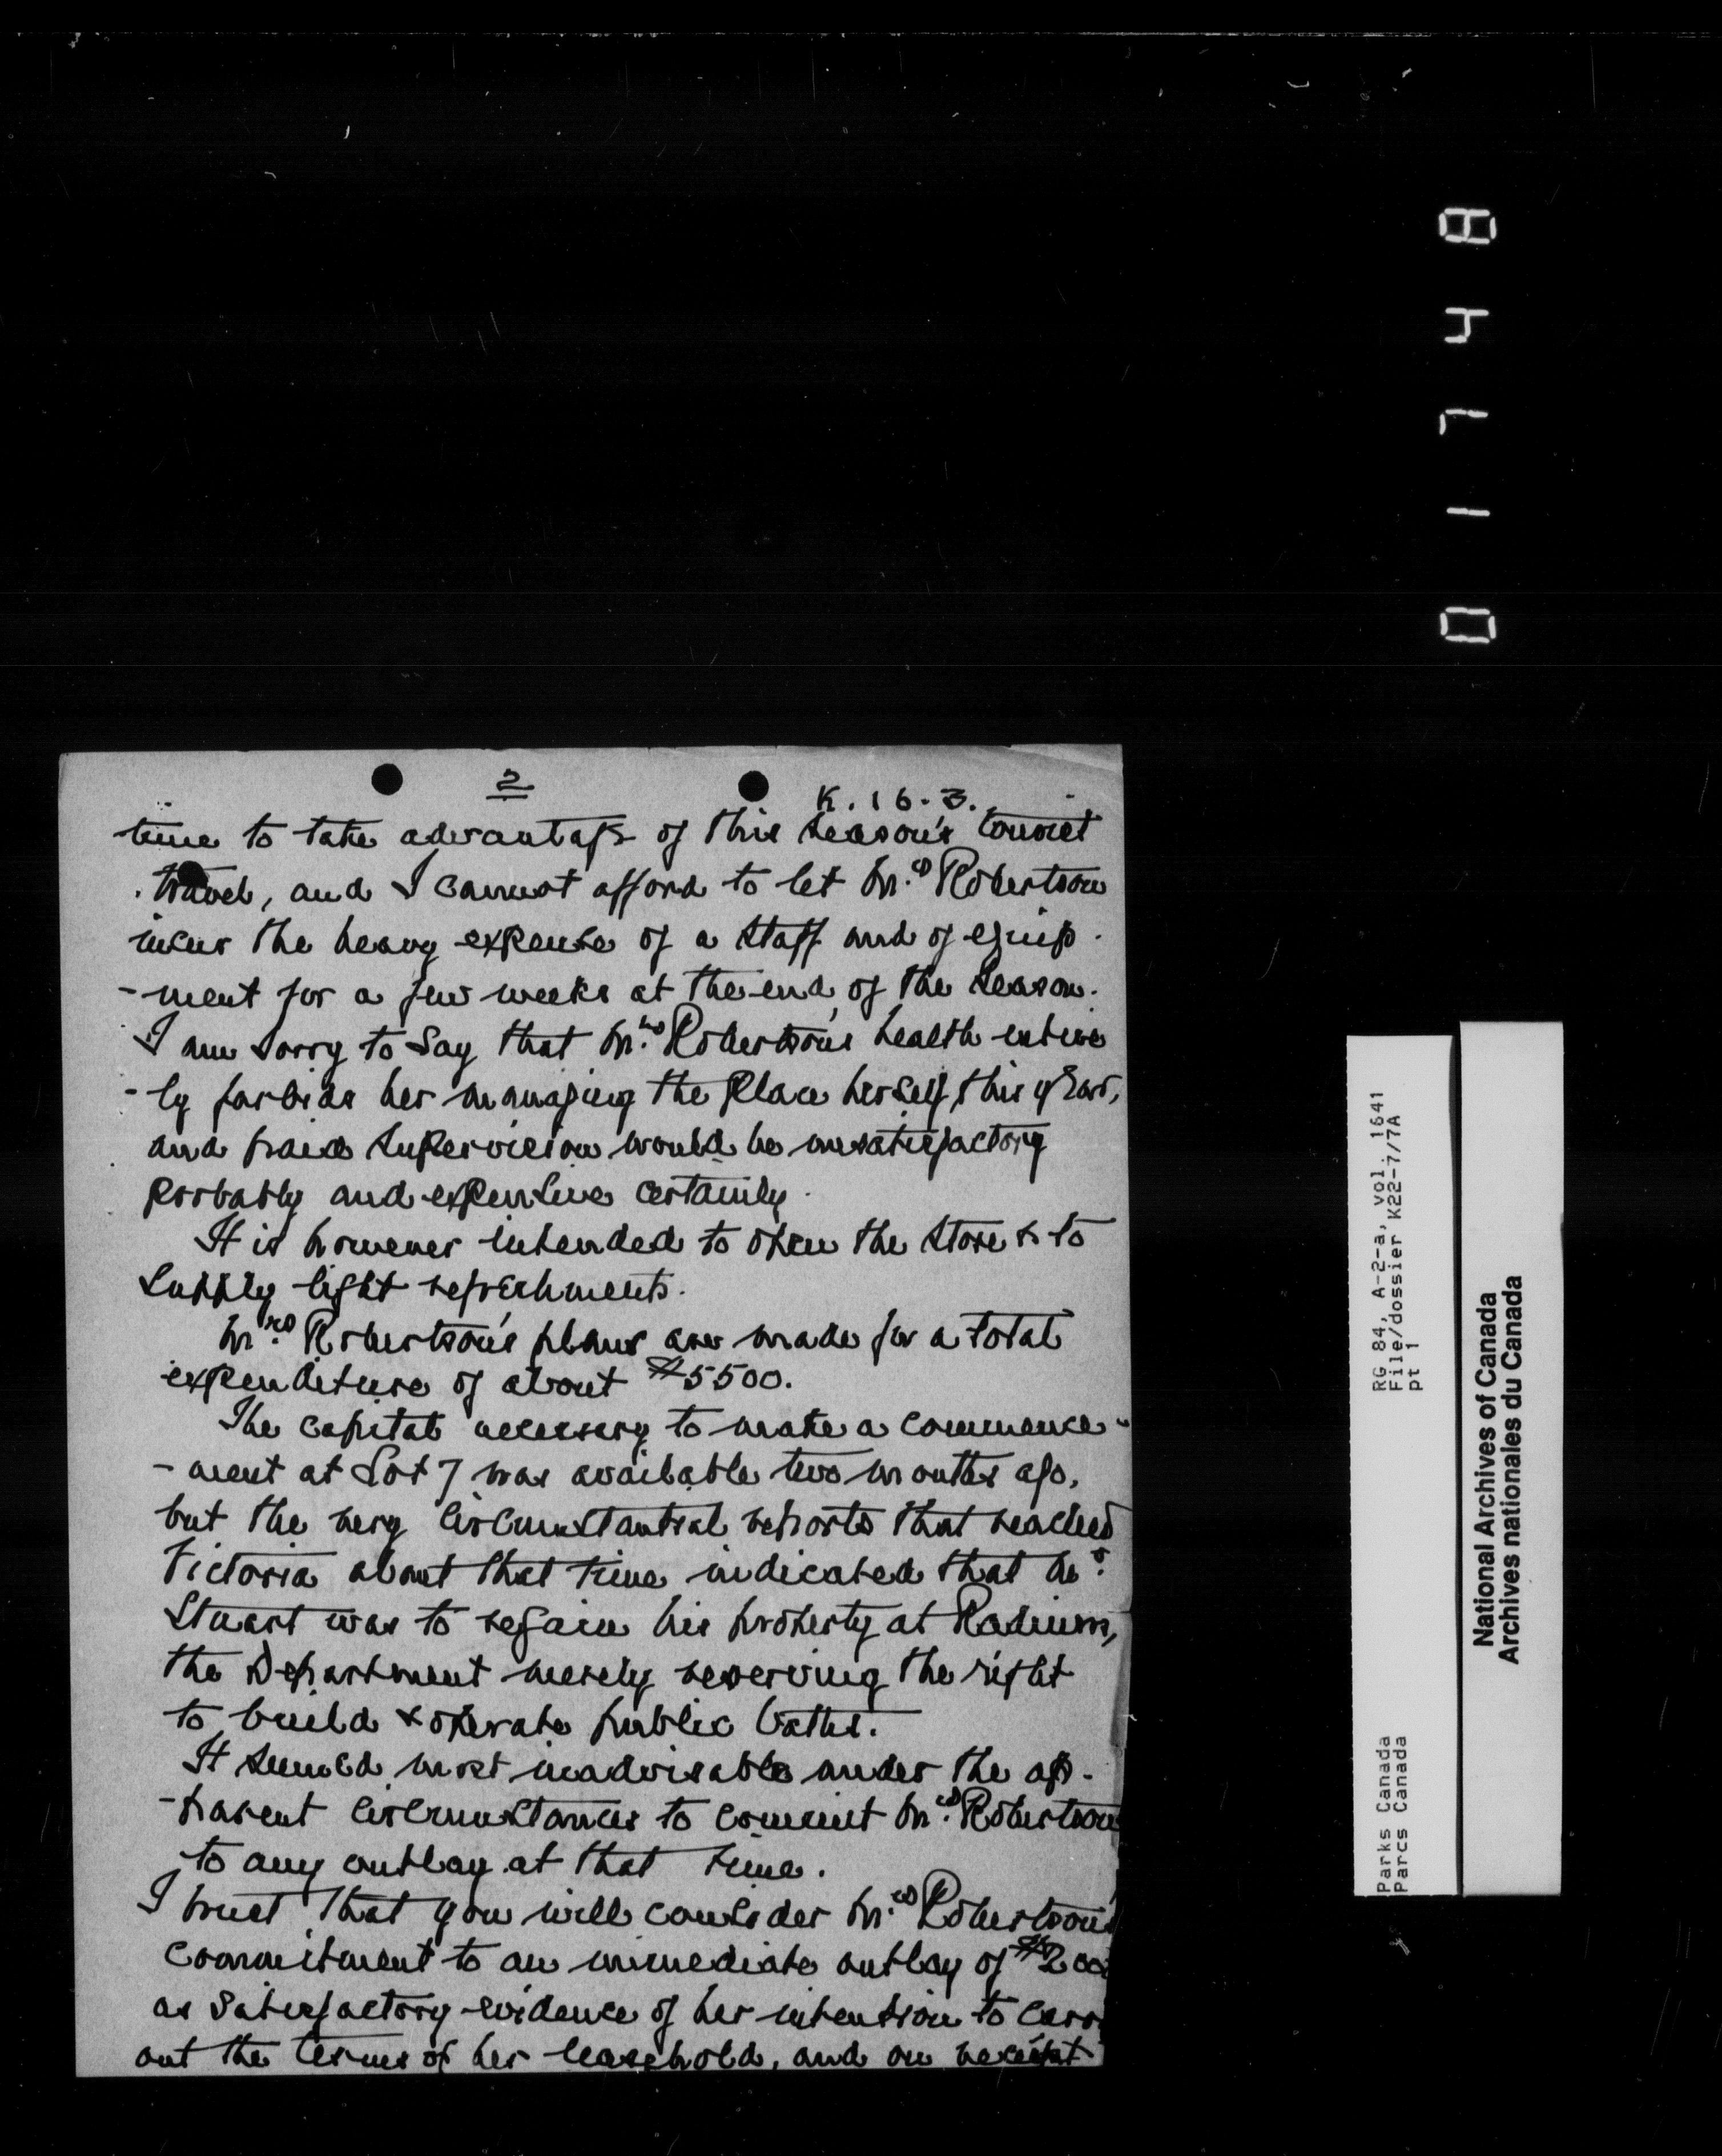 2
K. 16. 3.
time to take advantage of this season's tourist
travel, and I cannot afford to let Mrs Robertson
incur the heavy expense of a staff and of equip-
-ment for a few weeks at the end of the season.
I am sorry to say that Mrs Robertson's health entire
-ly forbids her managing the place herself, this year,
and paid supervision would be unsatisfactory
probably and expensive certainly.
It is however intended to open the store & to
supply light refreshments.
Mrs Robertson's plans are made for a total
expenditure of about $5500.
The capital necessary to make a commence-
-ment at Lot 7 was available two months ago,
but the very circumstantial reports that reached
Victoria about that time indicated that Dr
Stuart was to regain his property at Radium,
the Department merely reserving the right
to build & operate public baths.
It seemed most inadvisable under the ap-
-parent circumstances to commit Mrs Robertson
to any outlay at that time.
I trust that you will consider Mrs Robertson's
commitment to an immediate outlay of $200
as satisfactory evidence of her intention to carr
out the terms of her leasehold, and on receipt
01748
RG 84, A-2-a, vol. 1641
File/dossier K22-7/7A
pt 1
Parks Canada
Parcs Canada
National Archives of Canada
Archives nationales du Canada